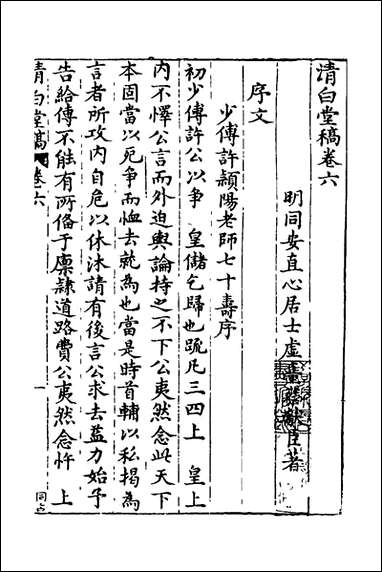 清白堂稿卷六
明同安直心居士虛臺蔡獻臣著
序文
少傅許頴陽老師七十壽序
初少傅許公以争　皇儲乞歸也䟽凡三四上　皇上
内不懌公言而外迫輿論持之不下公夷然念此天下
本固當以死争而恤去就為也當是時首輔以私揭為
言者所攻内自危以休沐請有後言公求去益力始予
告給傳不能有所俻于廩隷道路費公夷然念忤　上
清白堂稿　卷六　一